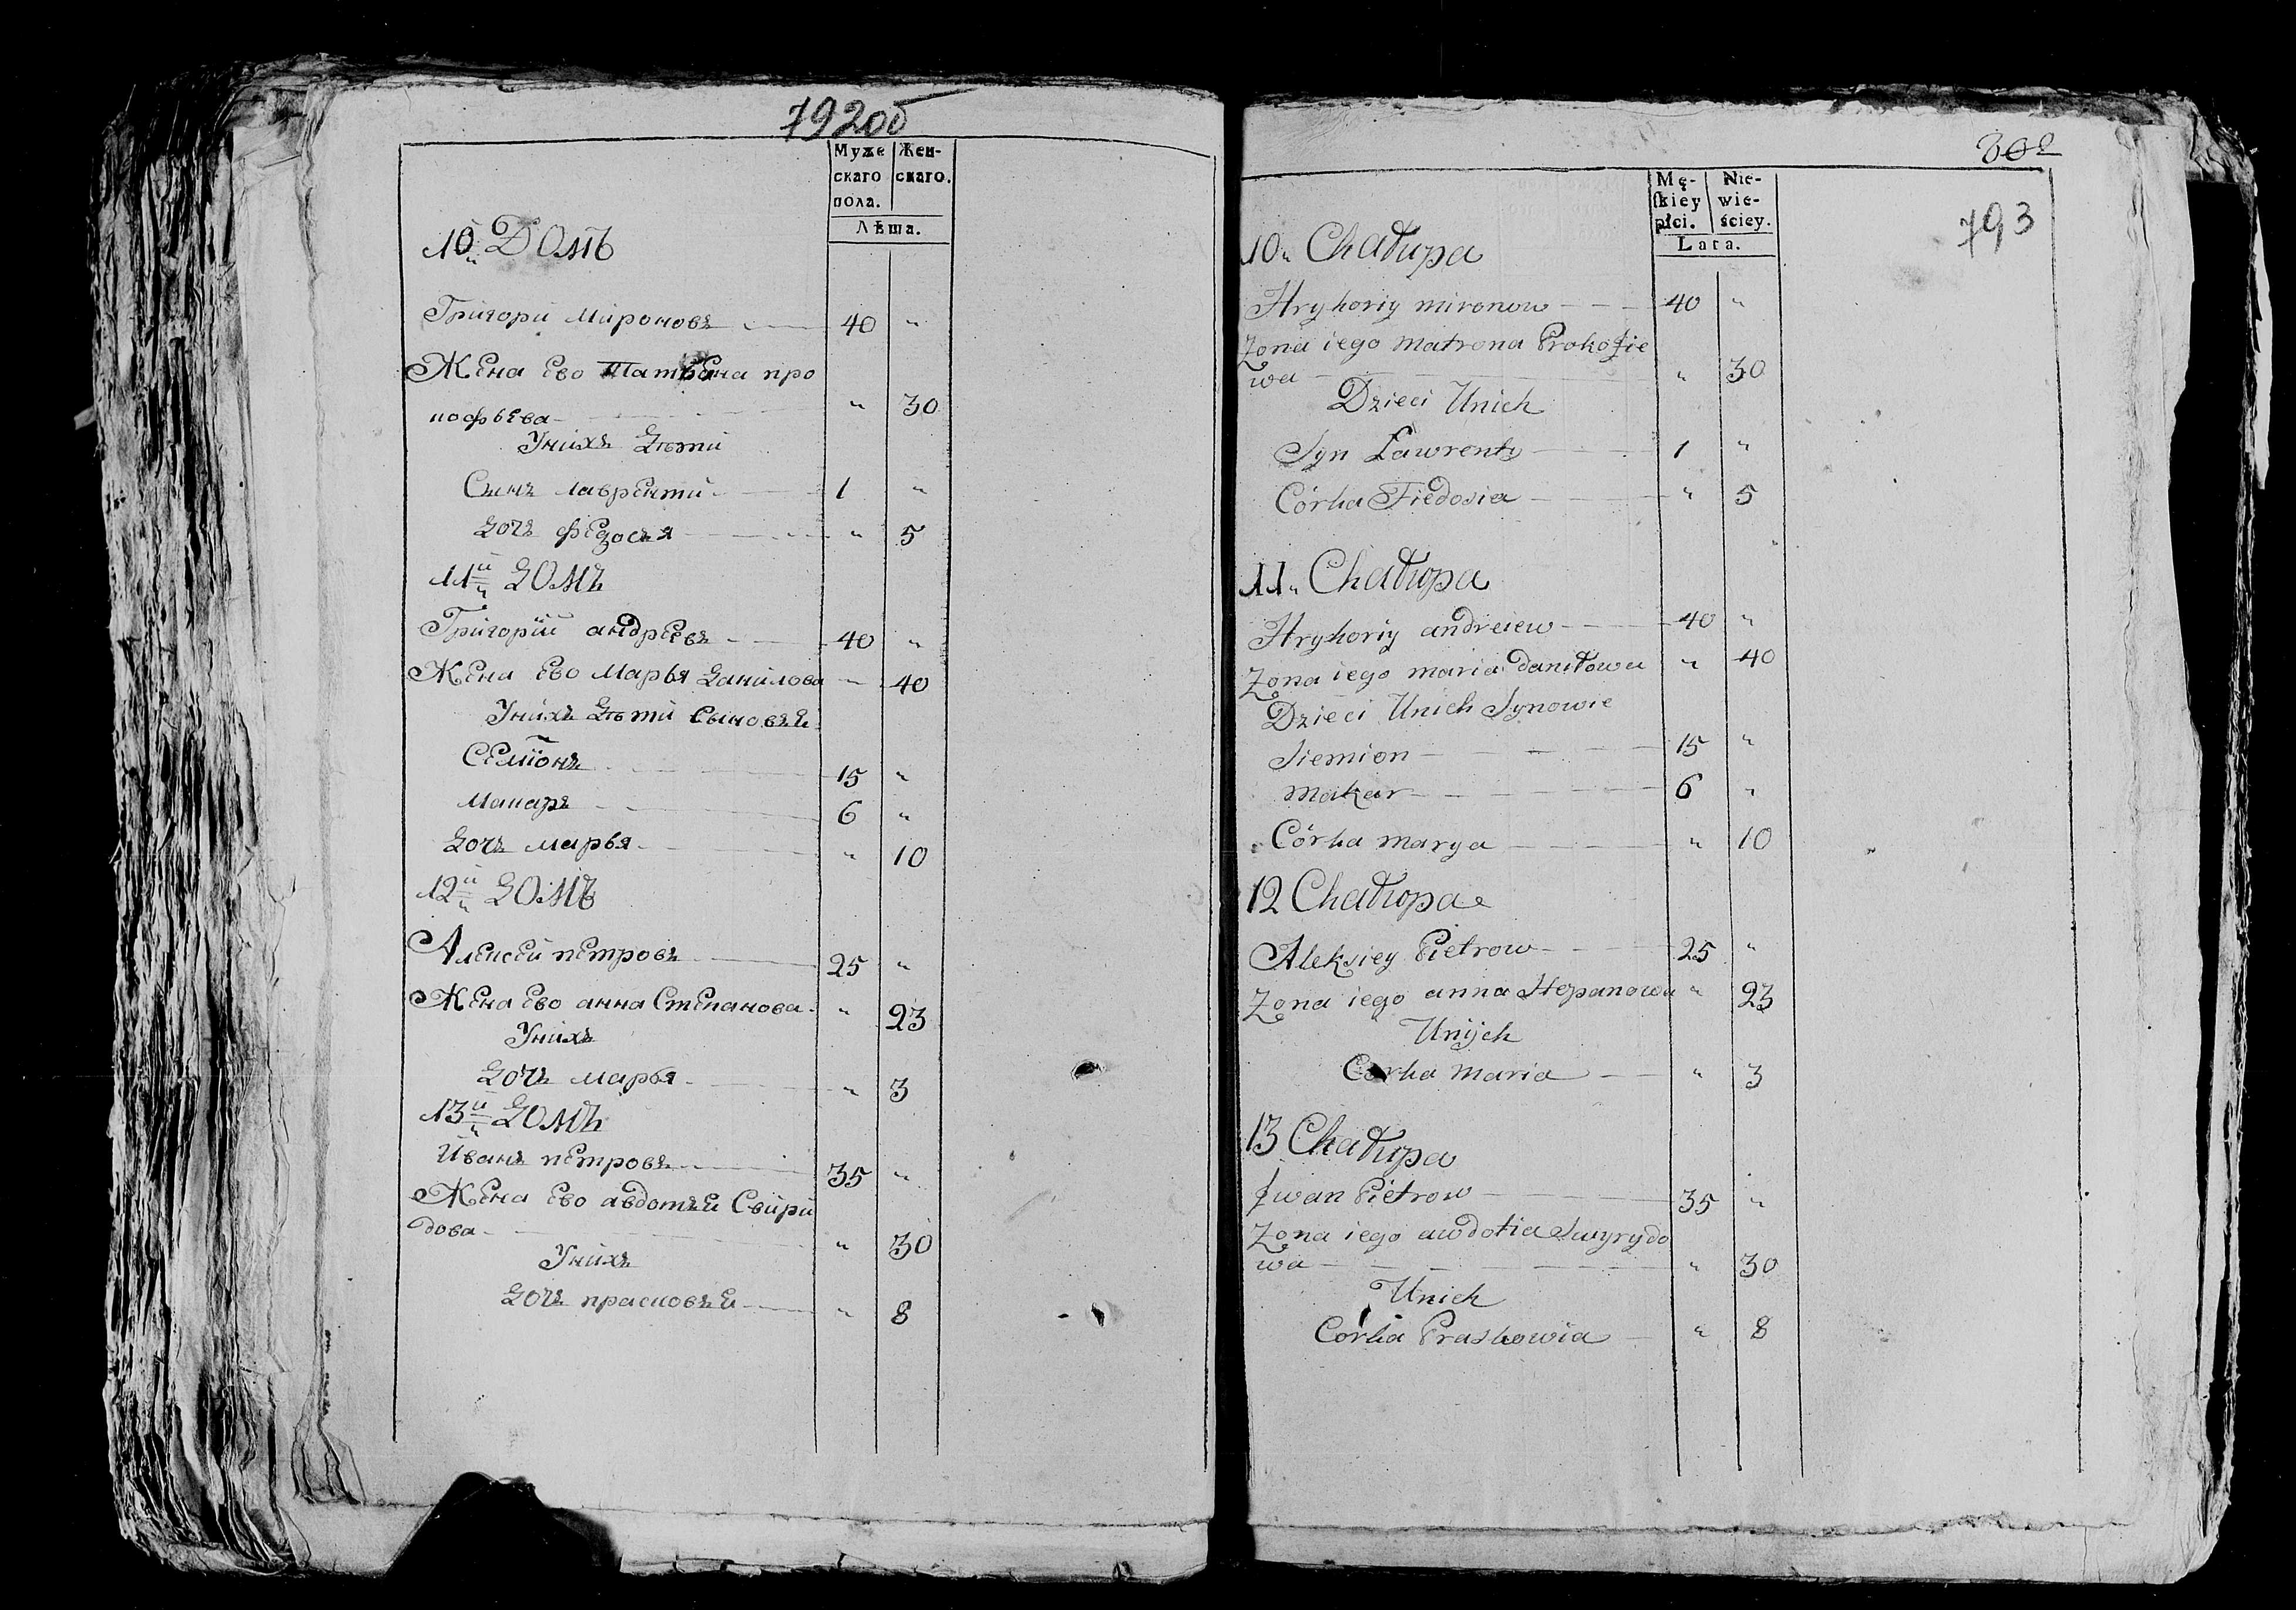 792об
Муже
скаго
пола.
Жен-
скаго.
Лѣта.
10й Домъ
Григори Мироновъ 40 "
Жена Ево Татьена про
кофьева " 30
Унихъ Дѣти
Сынъ лаврѣнти 1 "
Дочь федосья " 5
11й Домъ
Григорій андреевъ 40 "
Жена Ево Марья Данилова " 40
Унихъ Дѣти Сыновъя
Семіонъ 15 "
Макаръ 6 "
Дочь марья " 10
12й Домъ
Алексей петровъ 25 "
Жена Ево анна Степанова " 23
Унихъ
Дочь марья " 3
13й Домъ
Иванъ петровъ 35 "
Жена Ево авдотья Свири
дова " 30
Унихъ
Дочь прасковья " 8
793
Mę-
skiey
płci.
Nie-
wie-
ściey.
Lata.
10" Chałupa
Hryhoriy mironow 40 "
Zona iego Matrona Prokofie
wa " 30
Dzieci Unich
Syn Ławrenty 1 "
Córka Fiedosia " 5
11" Chałupa
Hryhoriy andreiew 40 "
Zona iego maria daniłowa " 40
Dzieci Unich Synowie
Siemion 15 "
makar 6 "
Córka marya " 10
12 Chałupa
Aleksiey Pietrow 25 "
Zona iego anna Stepanowa " 23
Unijch
Corka maria " 3
13 Chałupa
Jwan Pietrow 35 "
Zona iego awdotia Swyrydo
wa " 30
Unich
Corka Praskowia " 8